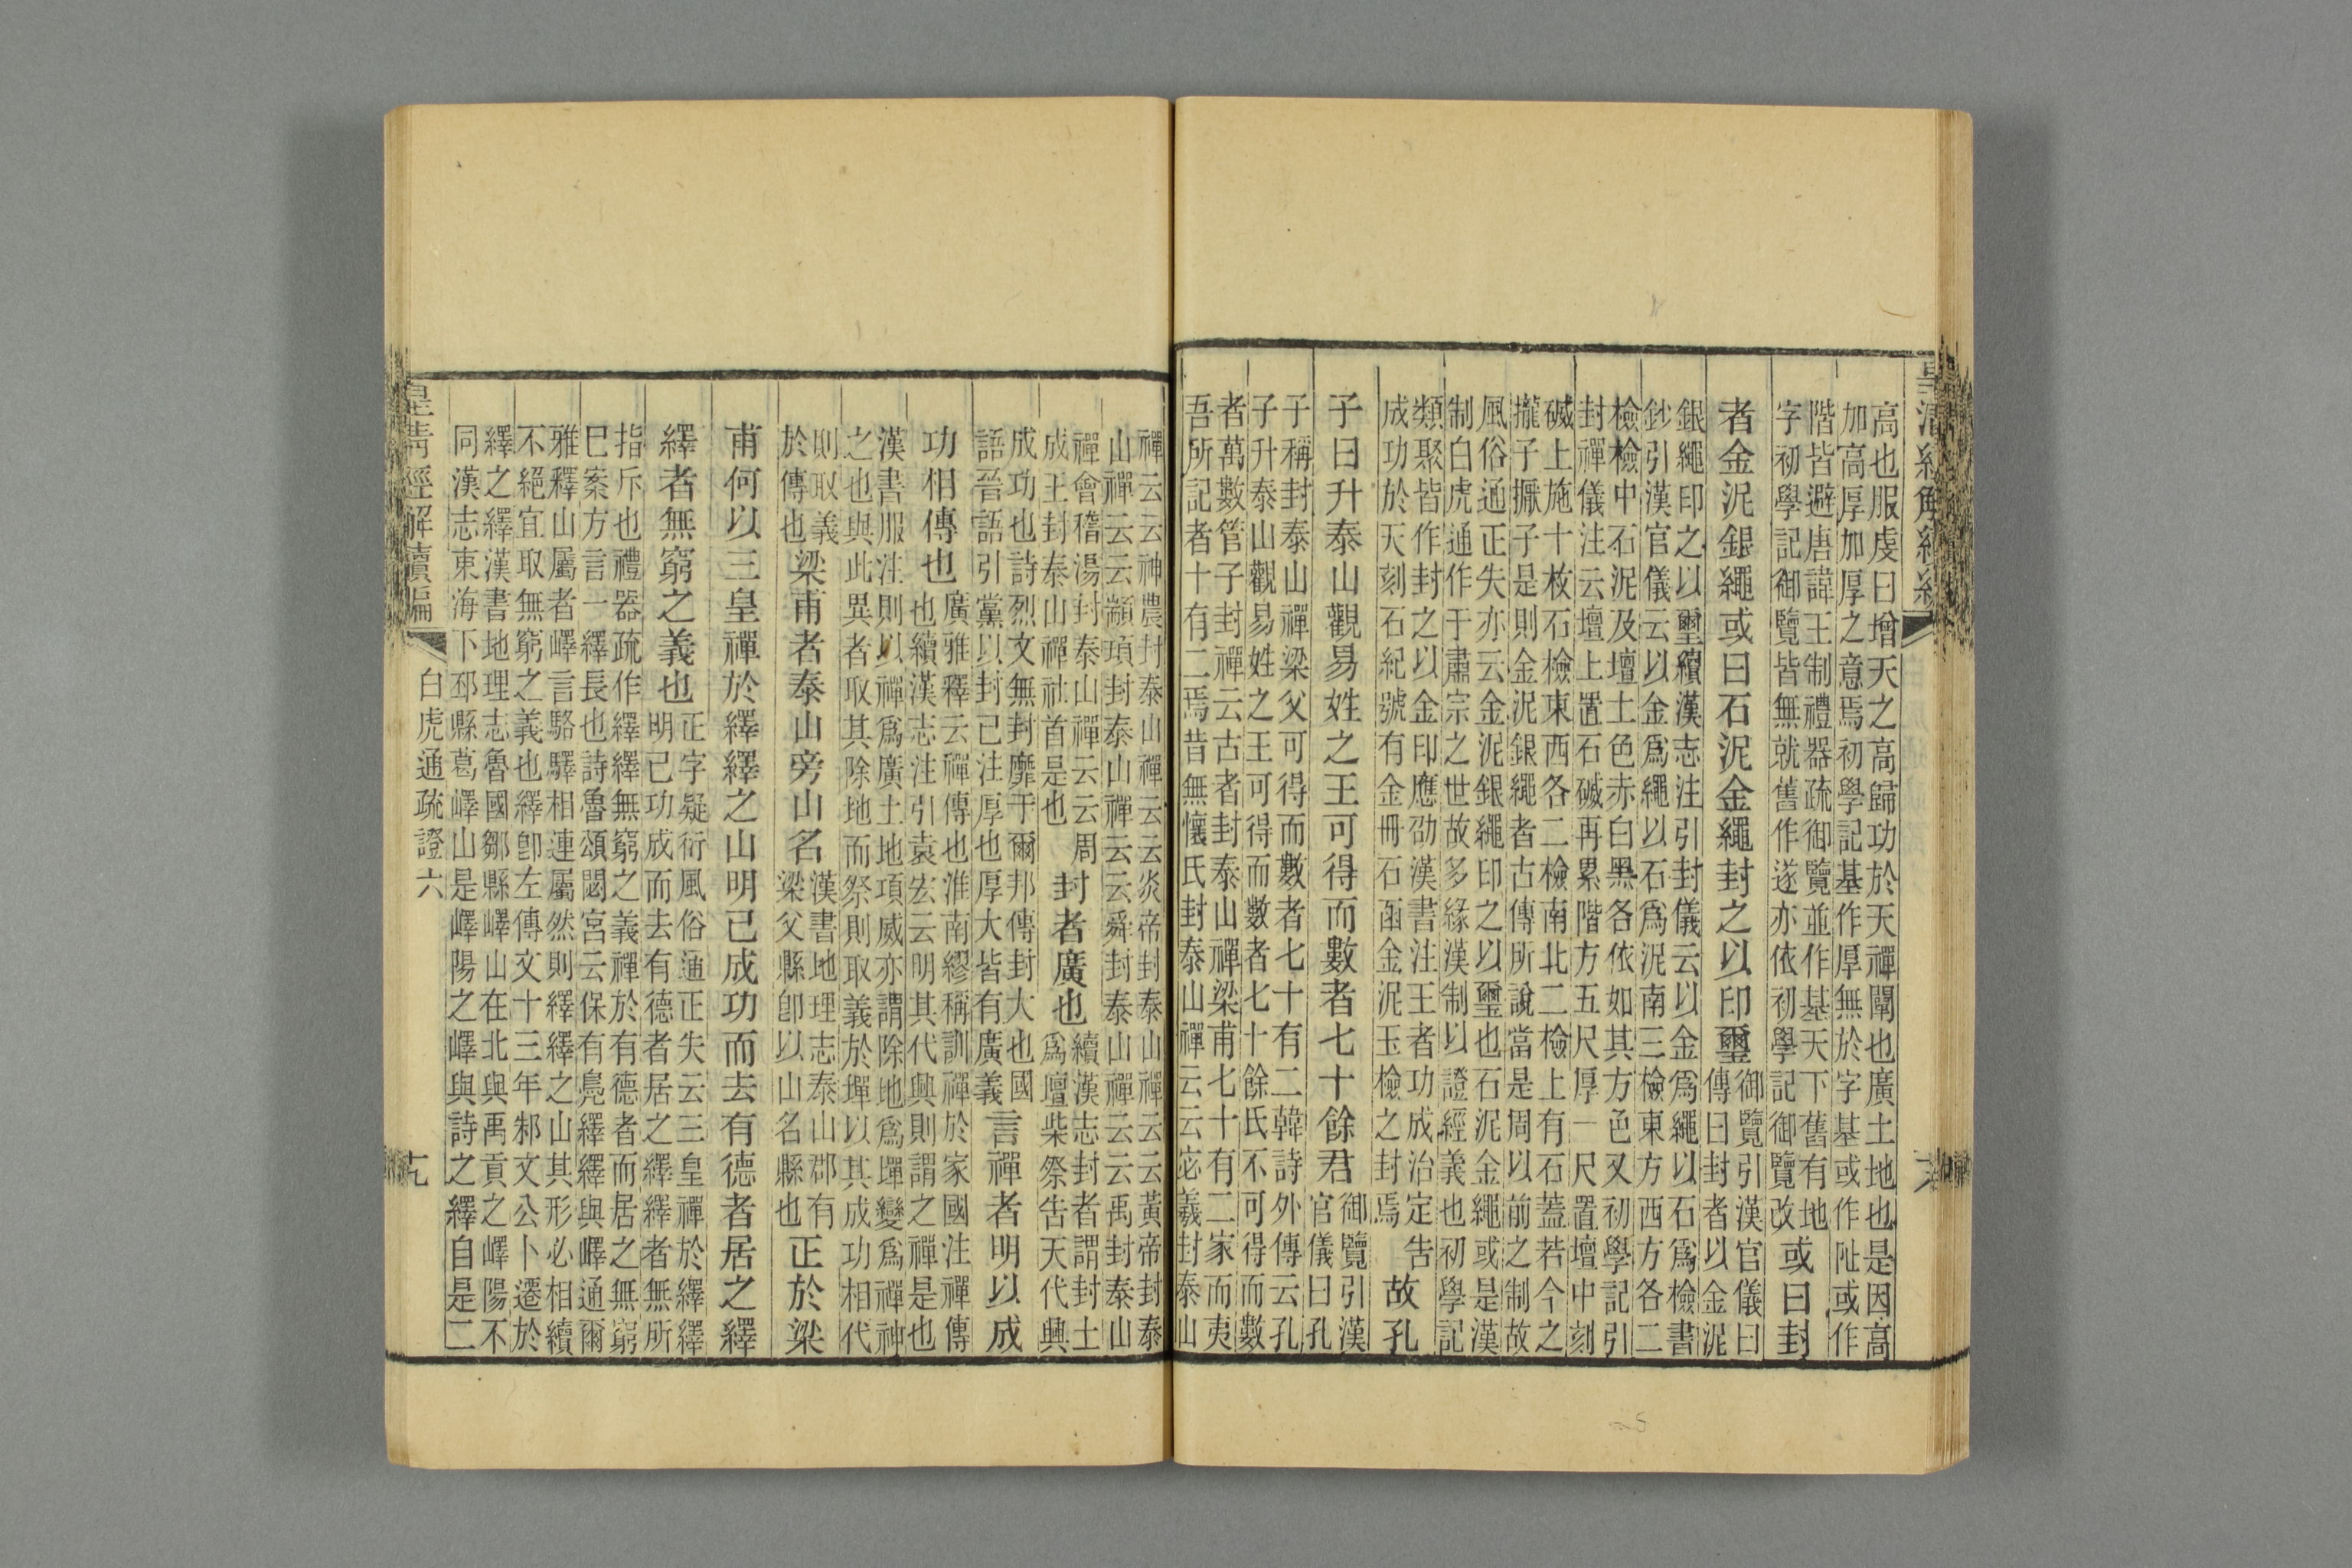 高也服虔曰增天之高歸功於天禪闡也廣土地也是因高
加高厚加厚之意焉初學記基作厚無於字基或作阯或作
階皆避唐諱王制禮器疏御覽並作基天下舊有地
字初學記御覽皆無就舊作遂亦依初學記御覽改或曰封
者金泥銀繩或曰石泥金繩封之以印璽御覽引漢官儀曰
傳曰封者以金泥
銀繩印之以璽續漢志注引封儀云以金爲繩以石爲檢書
鈔引漢官儀云以金爲繩以石爲泥南三檢東方西方各二
檢檢中石泥及壇土色赤白黑各依如其方色又初學記引
封禪儀注云壇上置石磩再累階方五尺厚一尺置壇中刻
磩上施十枚石檢東西各二檢南北二檢上有石蓋若今之
攏子撅子是則金泥銀繩者古傳所說當是周以前之制故
風俗通正失亦云金泥銀繩印之以璽也石泥金繩或是漢
制白虎通作于肅宗之世故多緣漢制以證經義也初學記
類聚皆作封之以金印應劭漢書注王者功成治定告
成功於天刻石紀號有金冊石函金泥玉檢之封焉故孔
子曰升泰山觀易姓之王可得而數者七十餘君御覽引漢
官儀曰孔
子稱封泰山禪梁父可得而數者七十有二韓詩外傳云孔
子升泰山觀易姓之王可得而數者七十餘氏不可得而數
者萬數管子封禪云古者封泰山禪梁甫七十有二家而夷
吾所記者十有二焉昔無懷氏封泰山禪云云宓羲封泰山
禪云云神農封泰山禪云云炎帝封泰山禪云云黃帝封泰
山禪云云顓頊封泰山禪云云舜封泰山禪云云禹封泰山
禪會稽湯封泰山禪云云周
成王封泰山禪社首是也封者廣也續漢志封者謂封土
爲壇柴祭告天代興
成功也詩烈文無封靡于爾邦傳封大也國
語晉語引黨以封己注厚也厚大皆有廣義言禪者明以成
功相傳也廣雅釋云禪傳也淮南繆稱訓禪於家國注禪傳
也續漢志注引袁宏云明其代興則謂之禪是也
漢書服注則以禪爲廣土地項威亦謂除地爲墠變爲禪神
之也與此異者取其除地而祭則取義於墠以其成功相代
則取義
於傳也梁甫者泰山旁山名漢書地理志泰山郡有
梁父縣卽以山名縣也正於梁
甫何以三皇禪於繹繹之山明已成功而去有德者居之繹
繹者無窮之義也正字疑衍風俗通正失云三皇禪於繹繹
明已功成而去有德者居之繹繹者無所
指斥也禮器疏作繹繹無窮之義禪於有德者而居之無窮
巳案方言一繹長也詩魯頌閟宮云保有鳧繹繹與嶧通爾
雅釋山屬者嶧言駱驛相連屬然則繹繹之山其形必相續
不絕宜取無窮之義也繹卽左傳文十三年邾文公卜遷於
繹之繹漢書地理志魯國鄒縣嶧山在北與禹貢之嶧陽不
同漢志東海下邳縣葛嶧山是嶧陽之嶧與詩之繹自是二
皇淸經解續編
白虎通疏證六